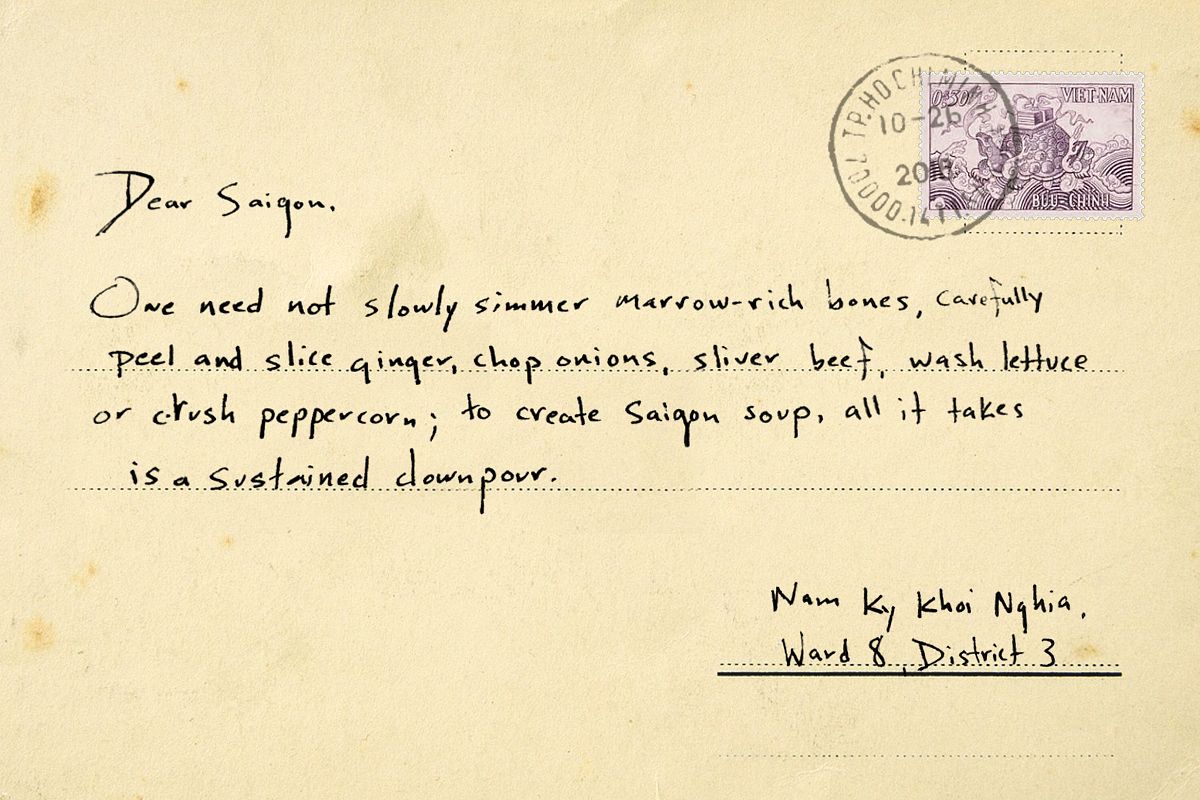 TP.HO CHI MINH
10-26
700000.1411
0$50
VIET-NAM
BUU-CHINH
Dear Saigon.
One need not slowly simmer marrow-rich bones, carefully
peel and slice ginger, chop onions, sliver beef, wash lettuce
or crush peppercorn; to create Saigon soup, all it takes
is a sustained downpour.
Nam Ky Khoi Nghia,
Ward 8, District 3